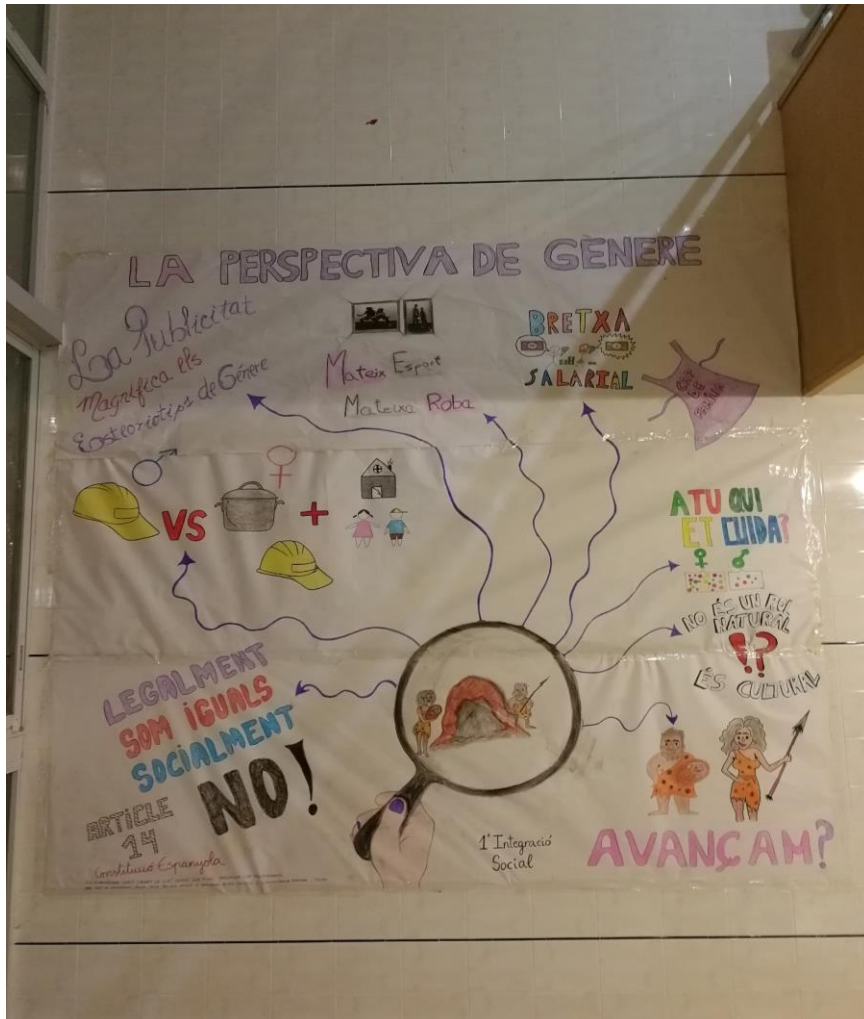 LA PERSPECTIVA DE GÈNERE
La Publicitat
Magnifica els
Esteriotips de Gènere
Mateix Esport
Mateixa Roba
BRETXA
SALARIAL
VS
+
A TU QUI
ET CUIDA?
NO ÉS UN ROL
NATURAL
!?
ÉS CULTURAL
LEGALMENT
SOM IGUALS
SOCIALMENT
NO!
ARTICLE
14
Constitució Espanyola
1º Integració
Social
AVANÇAM?